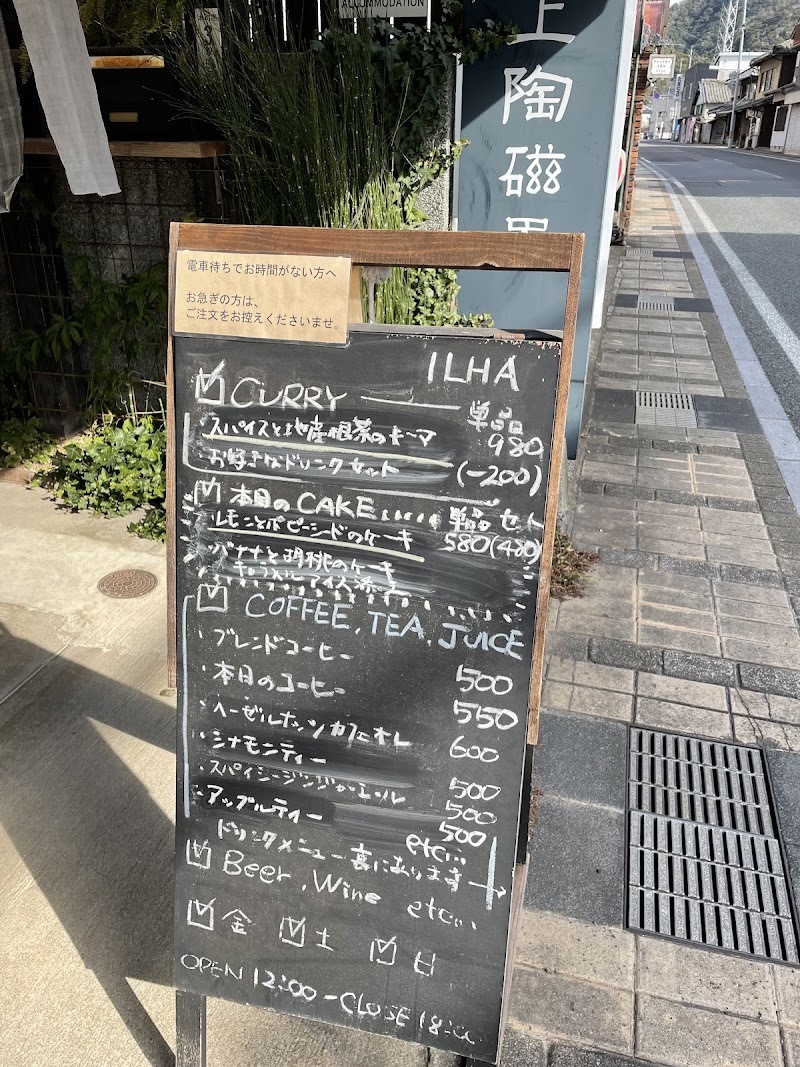 ACCOMMODATION
上陶磁器
電車待ちでお時間がない方へ
お急ぎの方は、
ご注文をお控えくださいませ。
ILHA
CURRY 単品
スパイスと地産根菜のキーマ 980
お好きなドリンクセット (-200)
本日のCAKE...... 単品 セット
レモンとポピーシードのケーキ 580(480)
バナナと胡桃のケーキ
キャラメルアイス添え
COFFEE, TEA, JUICE
・ブレンドコーヒー 500
・本日のコーヒー 550
・ヘーゼルナッツカフェオレ 600
・シナモンティー 500
・スパイシージンジャーエール 500
・アップルティー 500
etc...
ドリンクメニュー裏にあります→
Beer, Wine etc...
金 土 日
OPEN 12:00-CLOSE 18:00